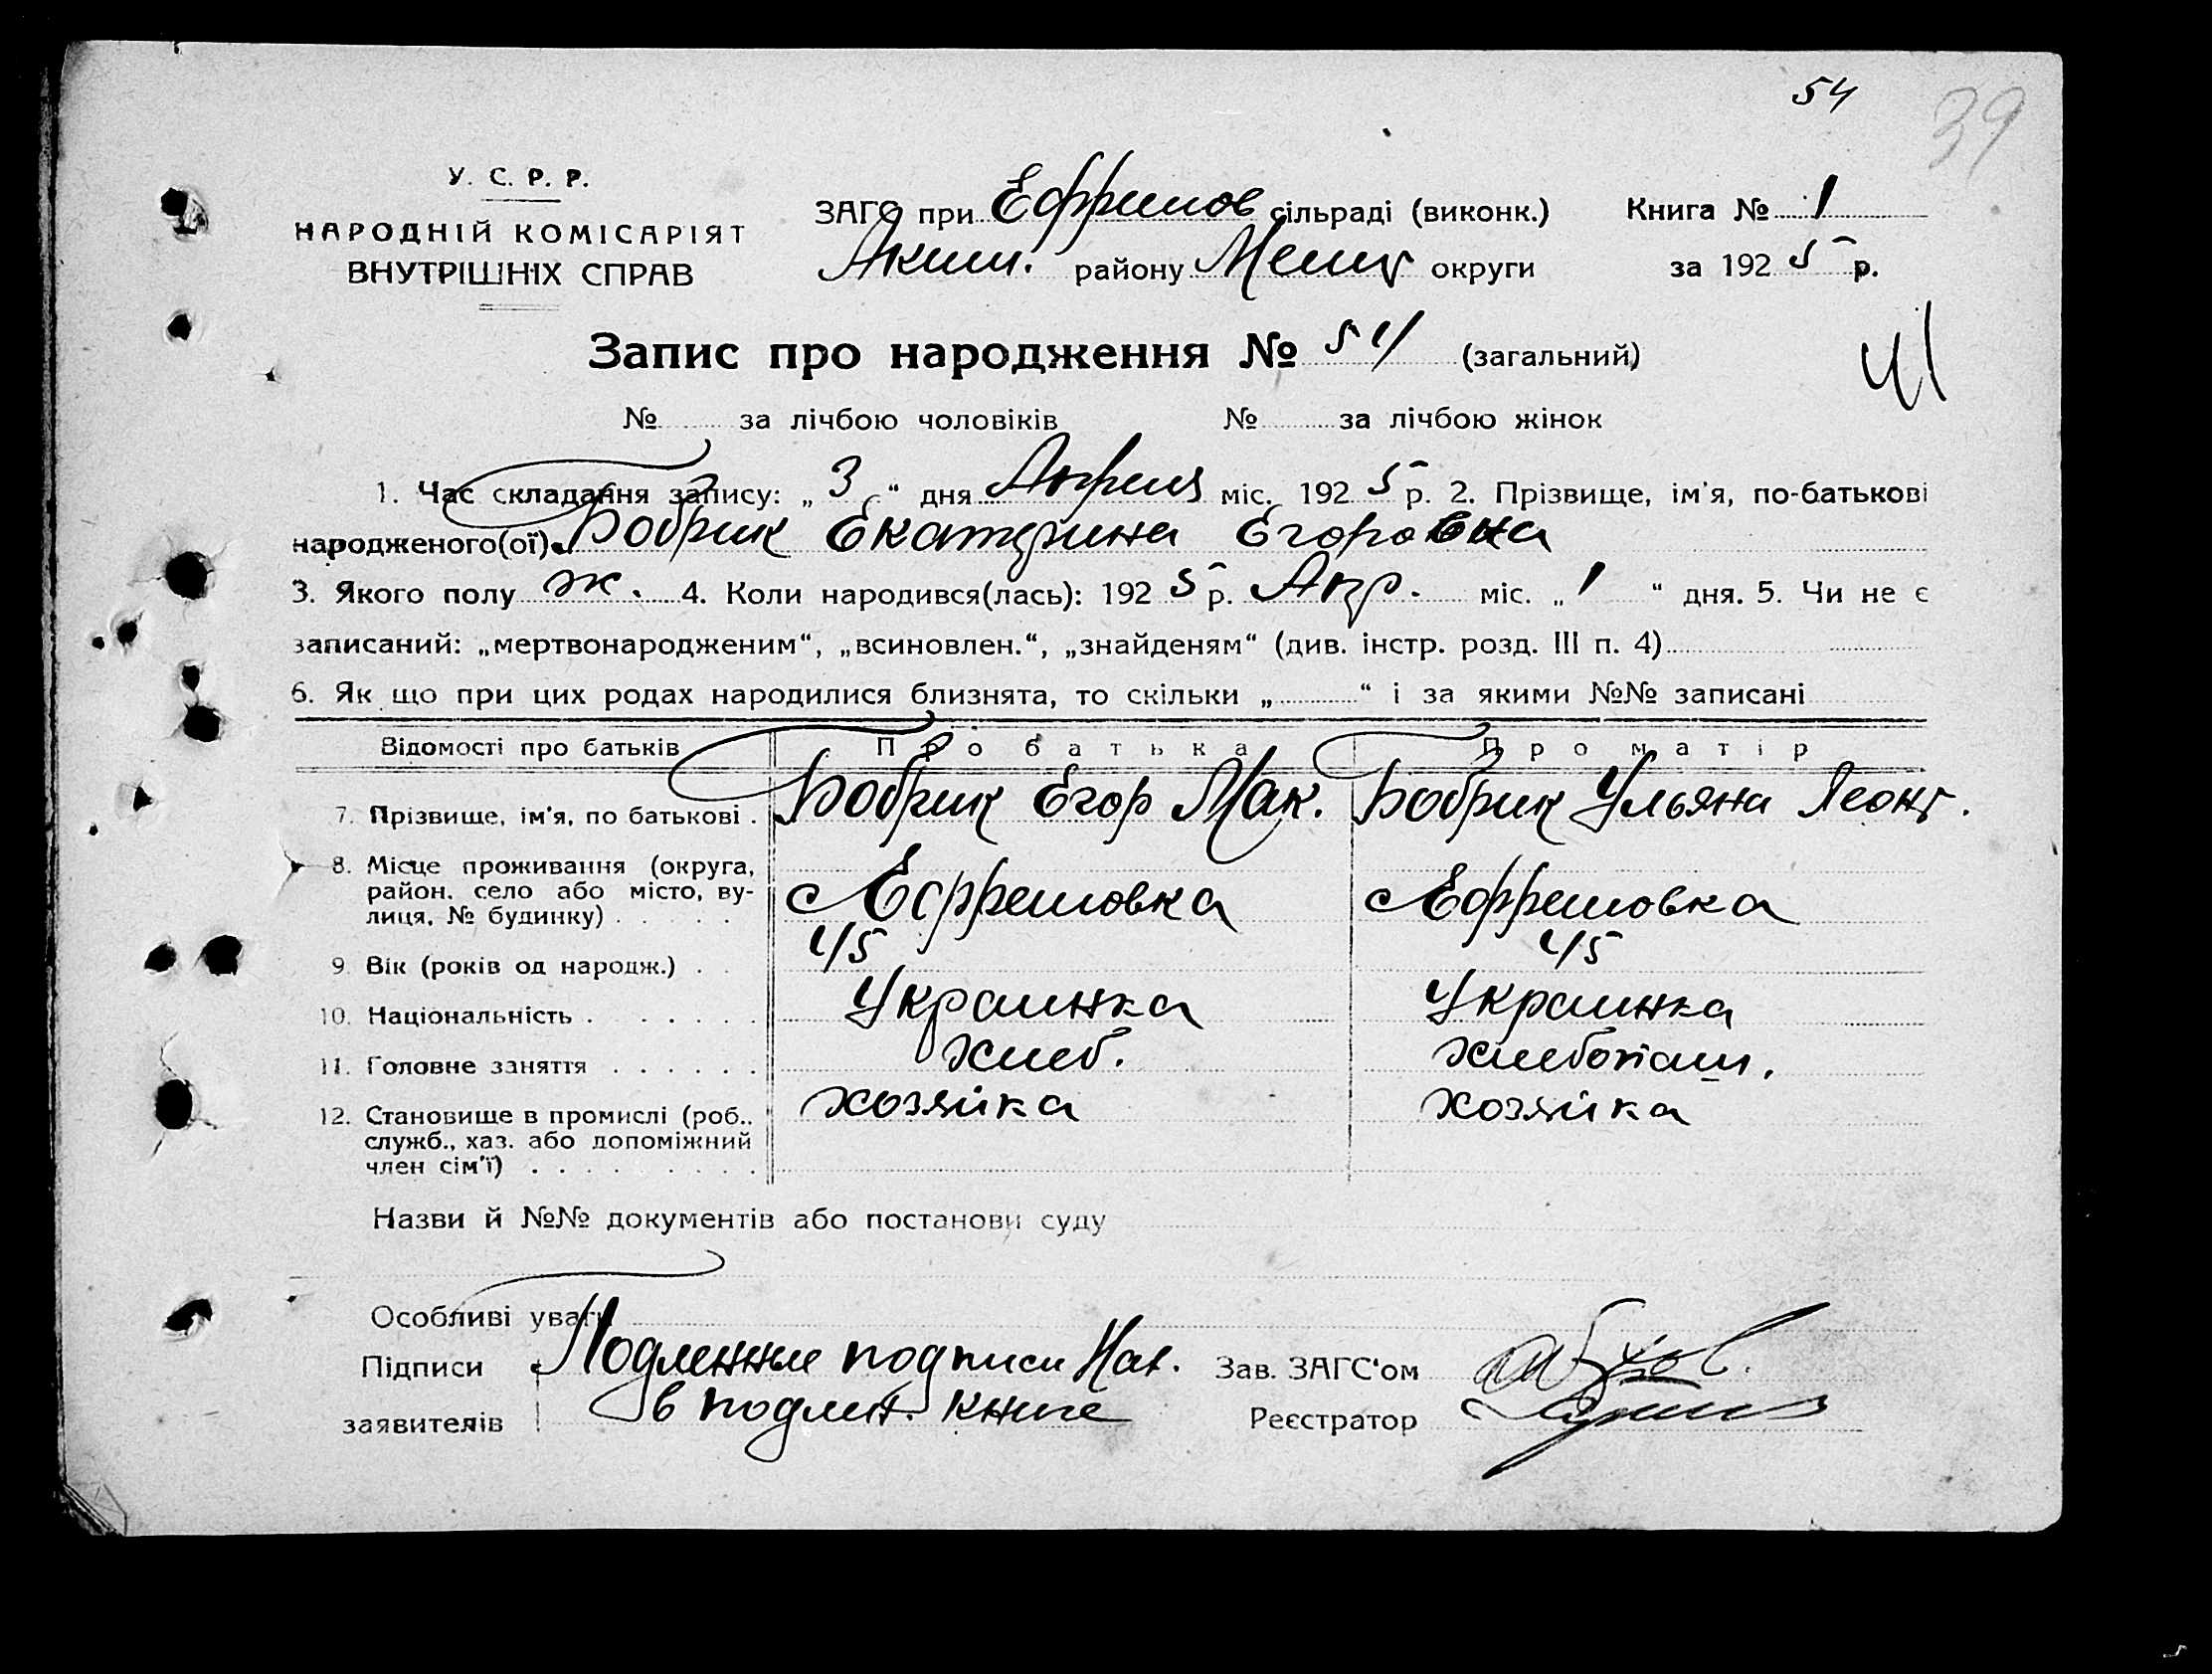 54
39
У. С. Р. Р.
НАРОДНІЙ КОМІСАРІЯТ
ВНУТРІШНІХ СПРАВ
ЗАГС при Ефремов сільраді (виконк.) Книга № 1
Аким. району Мелит округи за 1925 р.
Запис про народження № 54 (загальний)
41
№ за лічбою чоловіків № за лічбою жінок
1. Час складання запису: „ 3 “ дня Апреля міс. 1925 р. 2. Прізвище, ім'я, по-батькові
народженого(ої) Бобрик Екатерина Егоровна
3. Якого полу ж. 4. Коли народився(лась): 1925 р. Апр. міс. „ 1 “ дня. 5. Чи не є
записаний: „мертвонародженим“, „всиновлен.“, „знайденям“ (див. інстр. розд. III п. 4)
6. Як що при цих родах народилися близнята, то скільки „ “ і за якими №№ записані
Відомості про батьків Про батька Про матір
7. Прізвище, ім'я, по батькові . Бобрик Егор Мак. Бобрик Ульяна Леонт.
8. Місце проживання (округа,
район, село або місто, ву-
лиця, № будинку) . . . . . с Ефремовка с Ефремовка
9. Вік (років од народж.) . . 45 45
10. Національність . . . . . . . Украинка Украинка
11. Головне заняття . . . . . . хлеб. хлебопаш.
12. Становище в промислі (роб.. хозяйка хозяйка
служб., хаз. або допоміжний
член сім'ї) . . . . . . . . .
Назви й №№ документів або постанови суду
Особливі уваги
Підписи Подленные подписи Нах. Зав. ЗАГС'ом
заявителів в подлин. книге Реєстратор